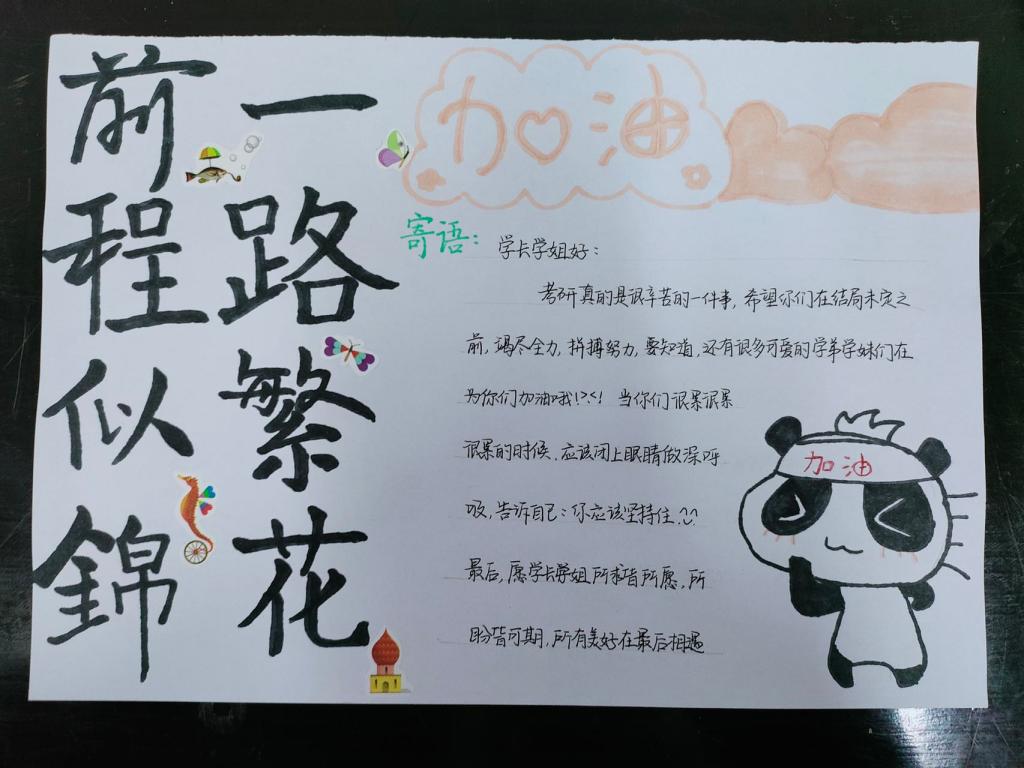 一路繁花
前程似錦
加油
寄语：
学长学姐好：
考研真的是很辛苦的一件事，希望你们在结局未定之
前，竭尽全力，拼搏努力，要知道，还有很多可爱的学弟学妹们在
为你们加油哦！>.<！当你们很累很累
很累的时候，应该闭上眼睛做深呼
吸，告诉自己：你应该坚持住。
最后，愿学长学姐所求皆所愿，所
盼皆可期，所有美好在最后相遇
加油